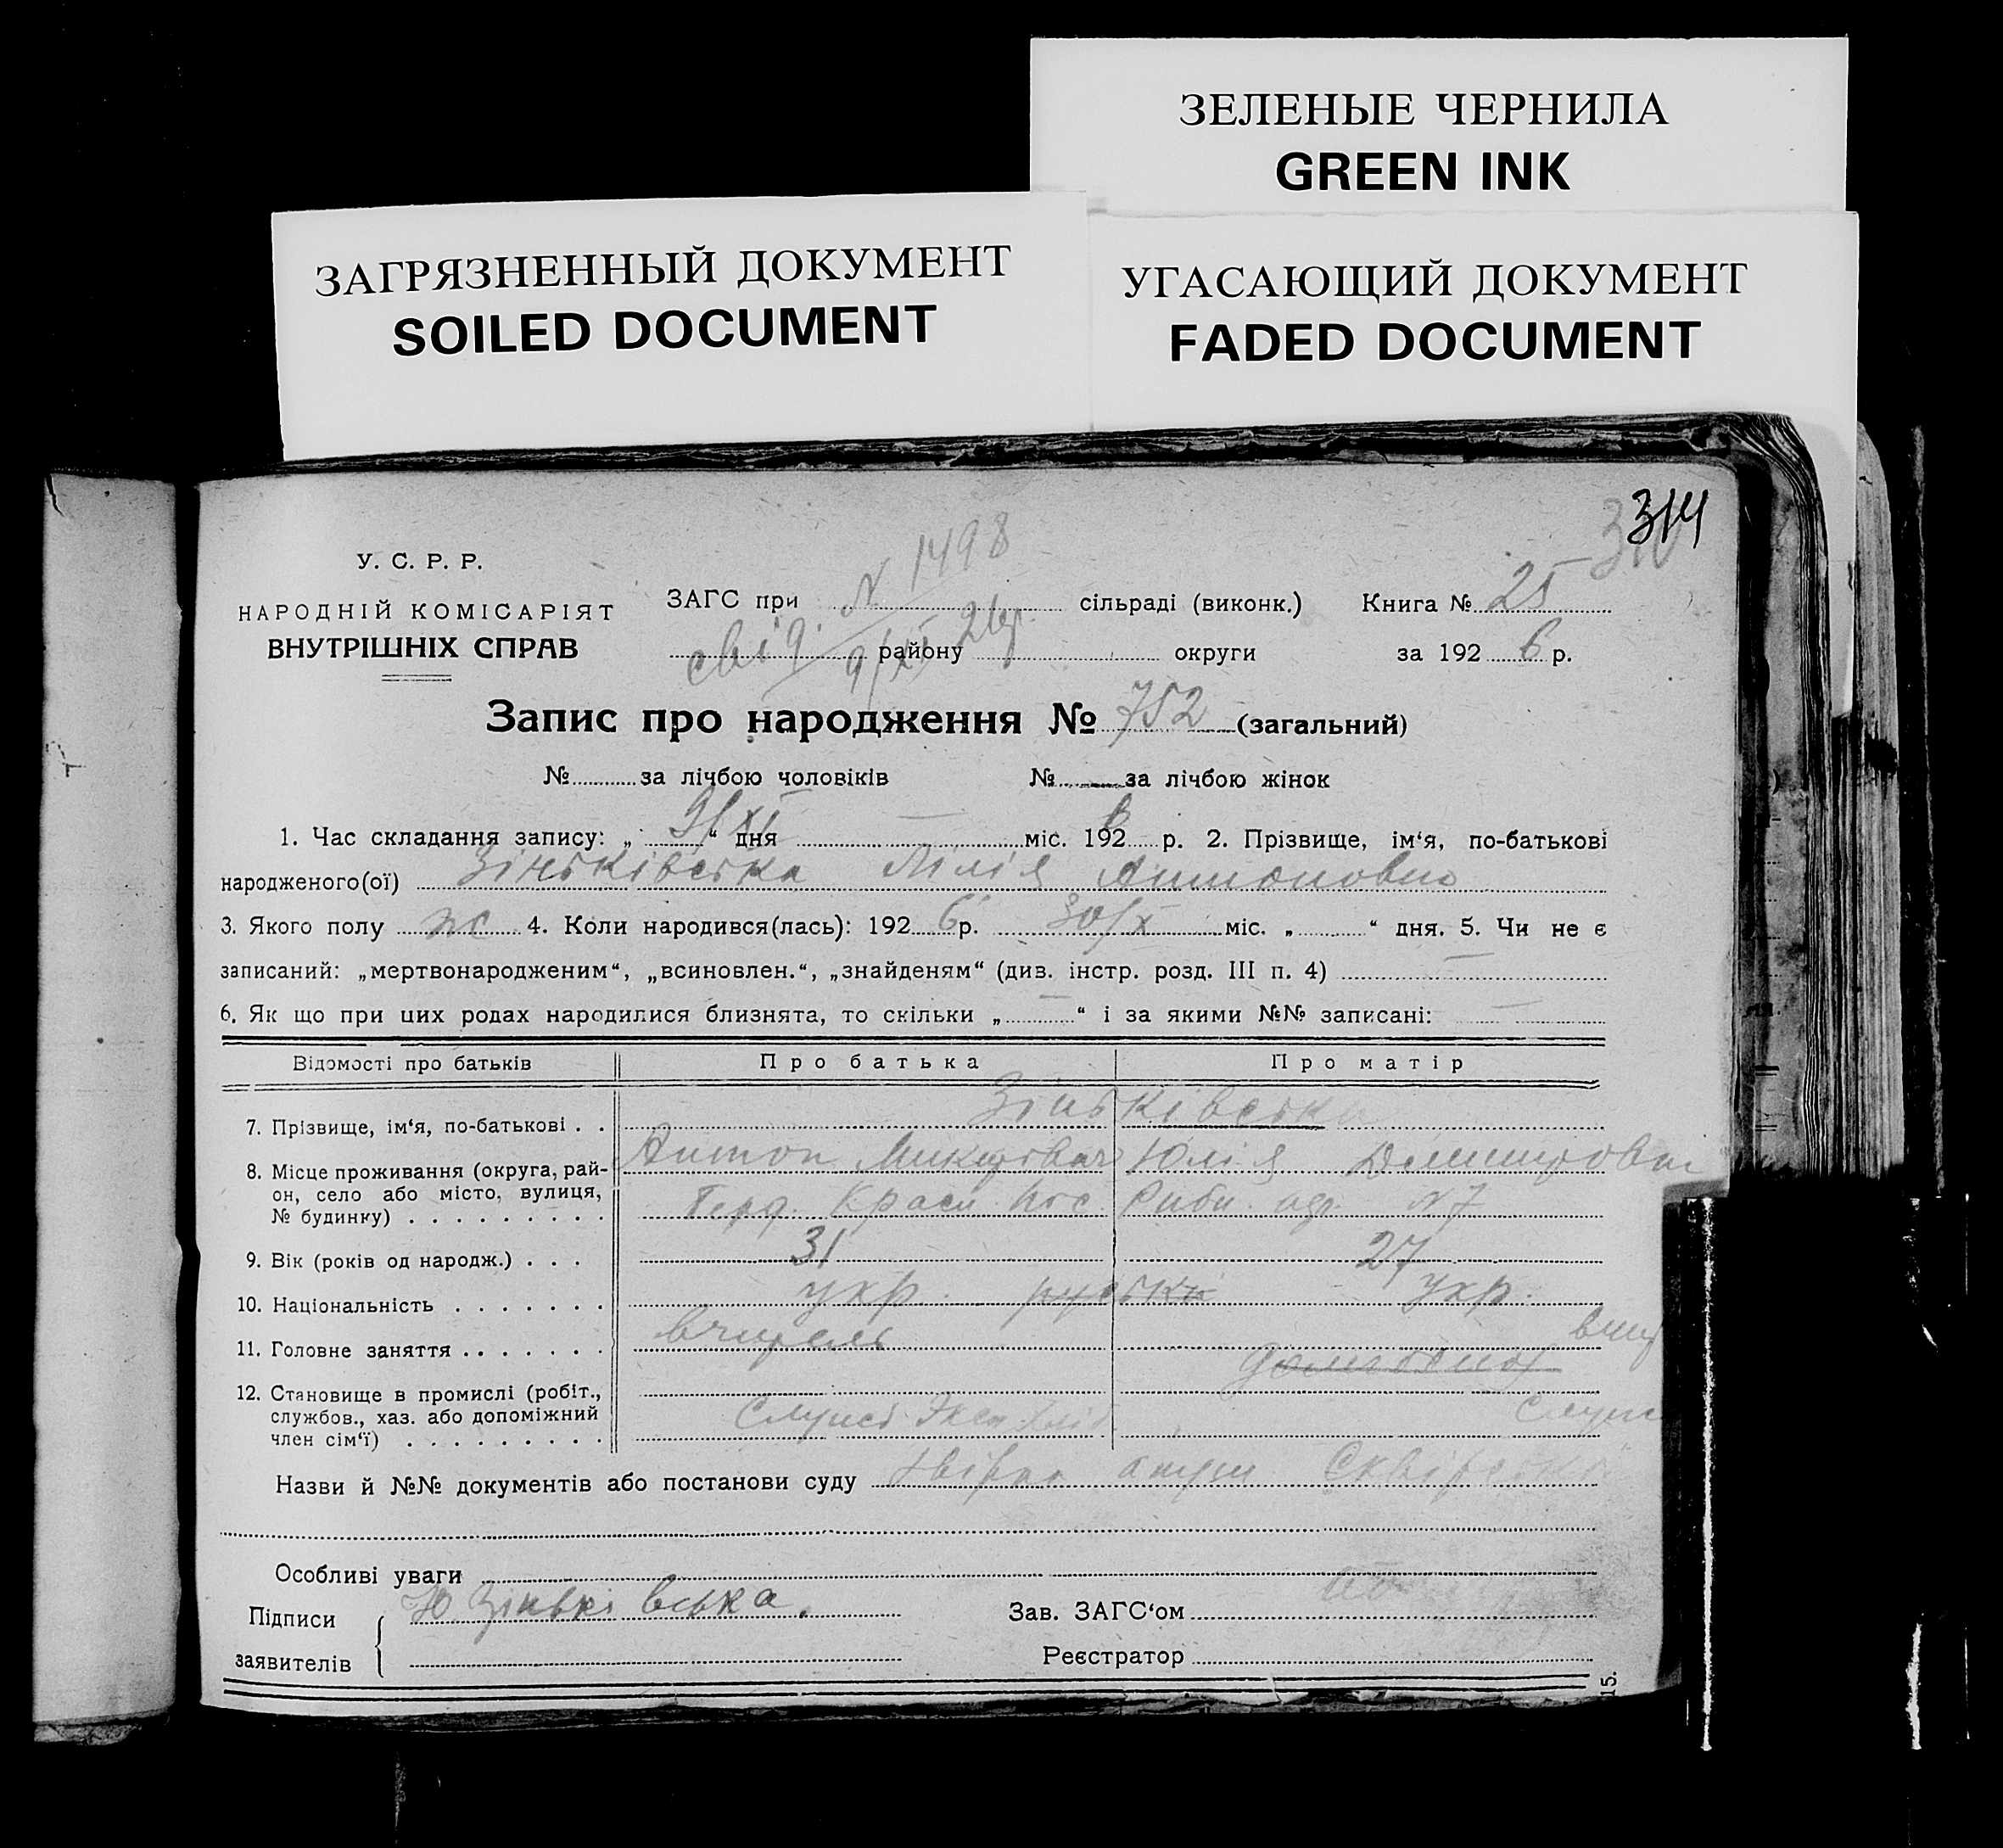 ЗЕЛЕНЫЕ ЧЕРНИЛА
GREEN INK
ЗАГРЯЗНЕННЫЙ ДОКУМЕНТ
SOILED DOCUMENT
УГАСАЮЩИЙ ДОКУМЕНТ
FADED DOCUMENT
314
У. С. Р. Р.
НАРОДНІЙ КОМІСАРІЯТ
ВНУТРІШНІХ СПРАВ
ЗАГС при N 1498 сільраді (виконк.) Книга № 25
свід. 9/XI 26р. району округи за 192 6 р.
Запис про народження № 752 (загальний)
№ за лічбою чоловіків № за лічбою жінок
1. Час складання запису: „ 9/XI “ дня — міс. 192 6 р. 2. Прізвище, ім‘я, по-батькові
народженого(ої) Зіньківська Лілія Антоновна
3. Якого полу ж 4. Коли народився(лась): 192 6 р. 30/X міс. „ “ дня. 5. Чи не є
записаний: „мертвонародженим“, „всиновлен.“, „знайденям“ (див. інстр. розд. III п. 4) —
6. Як що при цих родах народилися близнята, то скільки „ — “ і за якими №№ записані: —
Відомості про батьків Про батька Про матір
Зіньківська
7. Прізвище, ім‘я, по-батькові . .
Антон Юлія
8. Місце проживання (округа, рай-
он, село або місто, вулиця,
№ будинку) . . . . . . . . . N 7
9. Вік (років од народж.) . . . 31 27
10. Національність . . . . . . . укр. руська укр.
11. Головне заняття . . . . . . . вчитель
12. Становище в промислі (робіт.,
службов., хаз. або допоміжний
член сім‘ї) . . . . . . . . .
Назви й №№ документів або постанови суду
Особливі уваги
Підписи Ю Зіньківська.
заявителів
Зав. ЗАГС‘ом
Реєстратор
15.